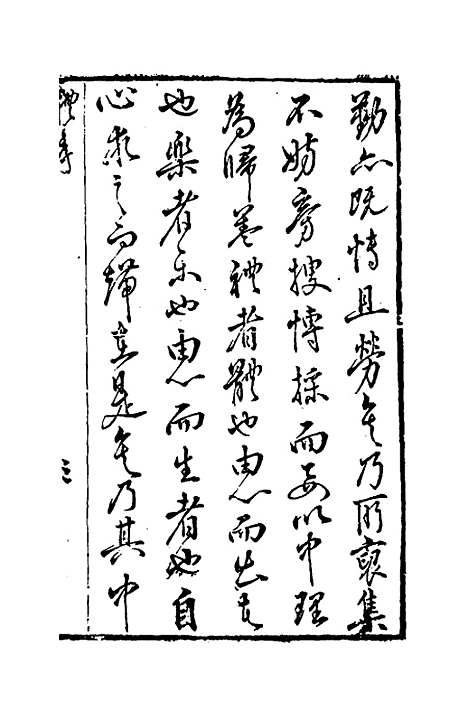 勤亦既博且勞矣乃所裒集
不妨旁搜博採而要以中理
為歸蓋禮者體也由心而出者
也樂者樂也由心而生者也自
心求之而歸其是矣乃其中
禮序
三